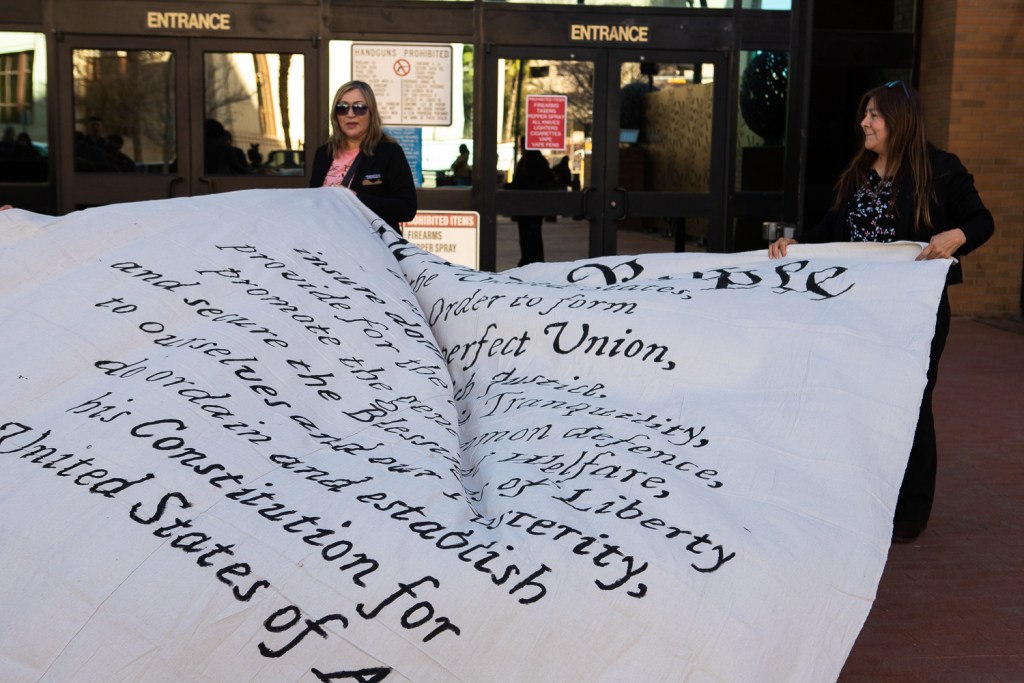 ENTRANCE
ENTRANCE
HANDGUNS PROHIBITED
PROHIBITED ITEMS
FIREARMS
TASERS
PEPPER SPRAY
ALL KNIVES
LIGHTERS
CIGARETTES
VAPE
VAPE PENS
OHIBITED ITEMS
FIREARMS
PPER SPRAY
People
States,
Order to form
erfect Union,
Justice,
insure do Tranquility,
provide for the mmon defence,
promote the gene Welfare,
and secure the Bless of Liberty
to ourselves and our sterity,
do ordain and establish
his Constitution for
United States of A